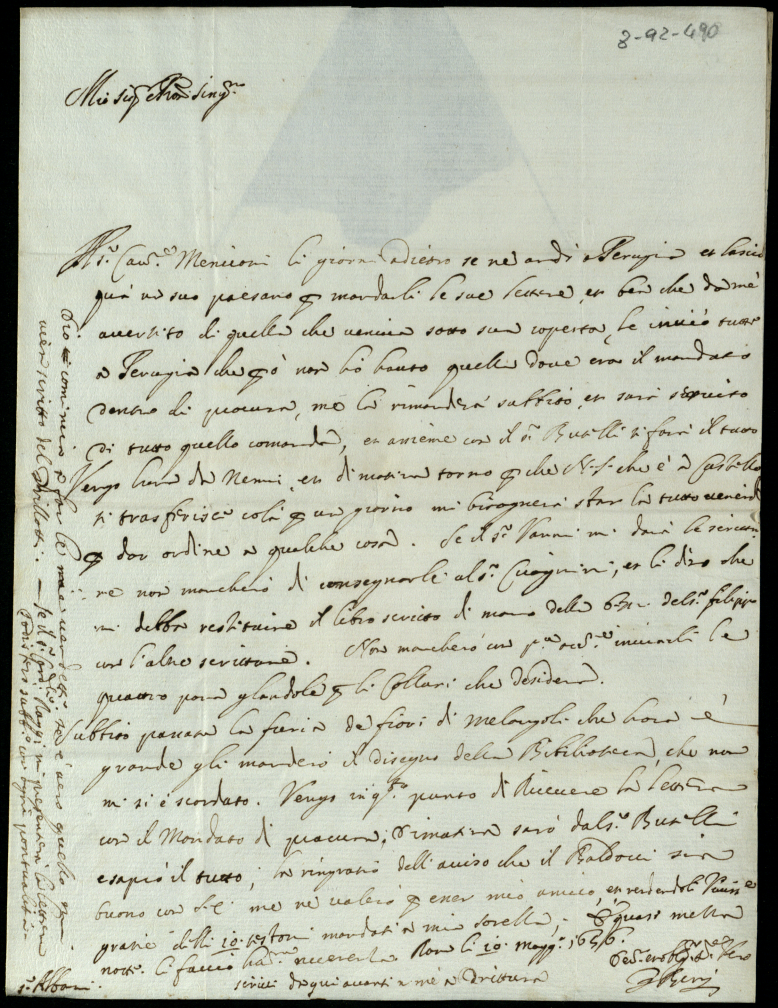 8-92-490
Mio sig.re
Il s.r Cav.re Meniconi li giorni adietro se ne andò a Perugia et lasciò
quà un suo paesano p mandarli le sue lettere, et ben che da mè
avertito di quella che veniva sotto sua coperta, le inviò tutte
a Perugia che p ò non hò hauto quella dove era il mandato
dentro di procura, me la rimanderà subbito, et sarà servito
di tutto quello comanda, et assieme con il s.r Butelli si farà il tutto
Vengo hora da Nemi, et dimatina torno p che N. S. che è a Castello
si trasferisce colà p un giorno mi bisognerà star là tutto venerdì
p dar ordine a qualche cosa. Se il s.r Vanni mi darà le scrittu
re non mancherò di consegnarle al s.r et li dirò che
mi debba restituire il libro scritto di mano della b: m: del s.r Filippo
con l'altre scritture. Non mancherò con p.a occ.ne inviarli le
quattro para glandole p li Collari che desidera.
Subbito passata la furia de fiori di Melangoli che hora è
grande gli manderò il disegno della Bibilioteca, che non
mi si è scordato. Vengo in q.to punto di Riceuere la lettera
con il Mandato di procura, dimatina sarò dal s.r Butelli
e saprò il tutto, la ringratio dell'aviso che il Baldocci sia
buono con me ne valerò p esser mio amico, et rendendoli
gratie delli 10 testoni mandati a mia sorella, È quasi mezza
notte li faccio riverenza Roma li 10 magg.o 1696.
scrivi da qui avanti a mè a drittura
s.r Albani
Dio cominci a far le sue vendette se è vero quello
vien scritto del
Se il s.r Gio: Maggi mi presenterà la lettera
subbito con ogni pontualità